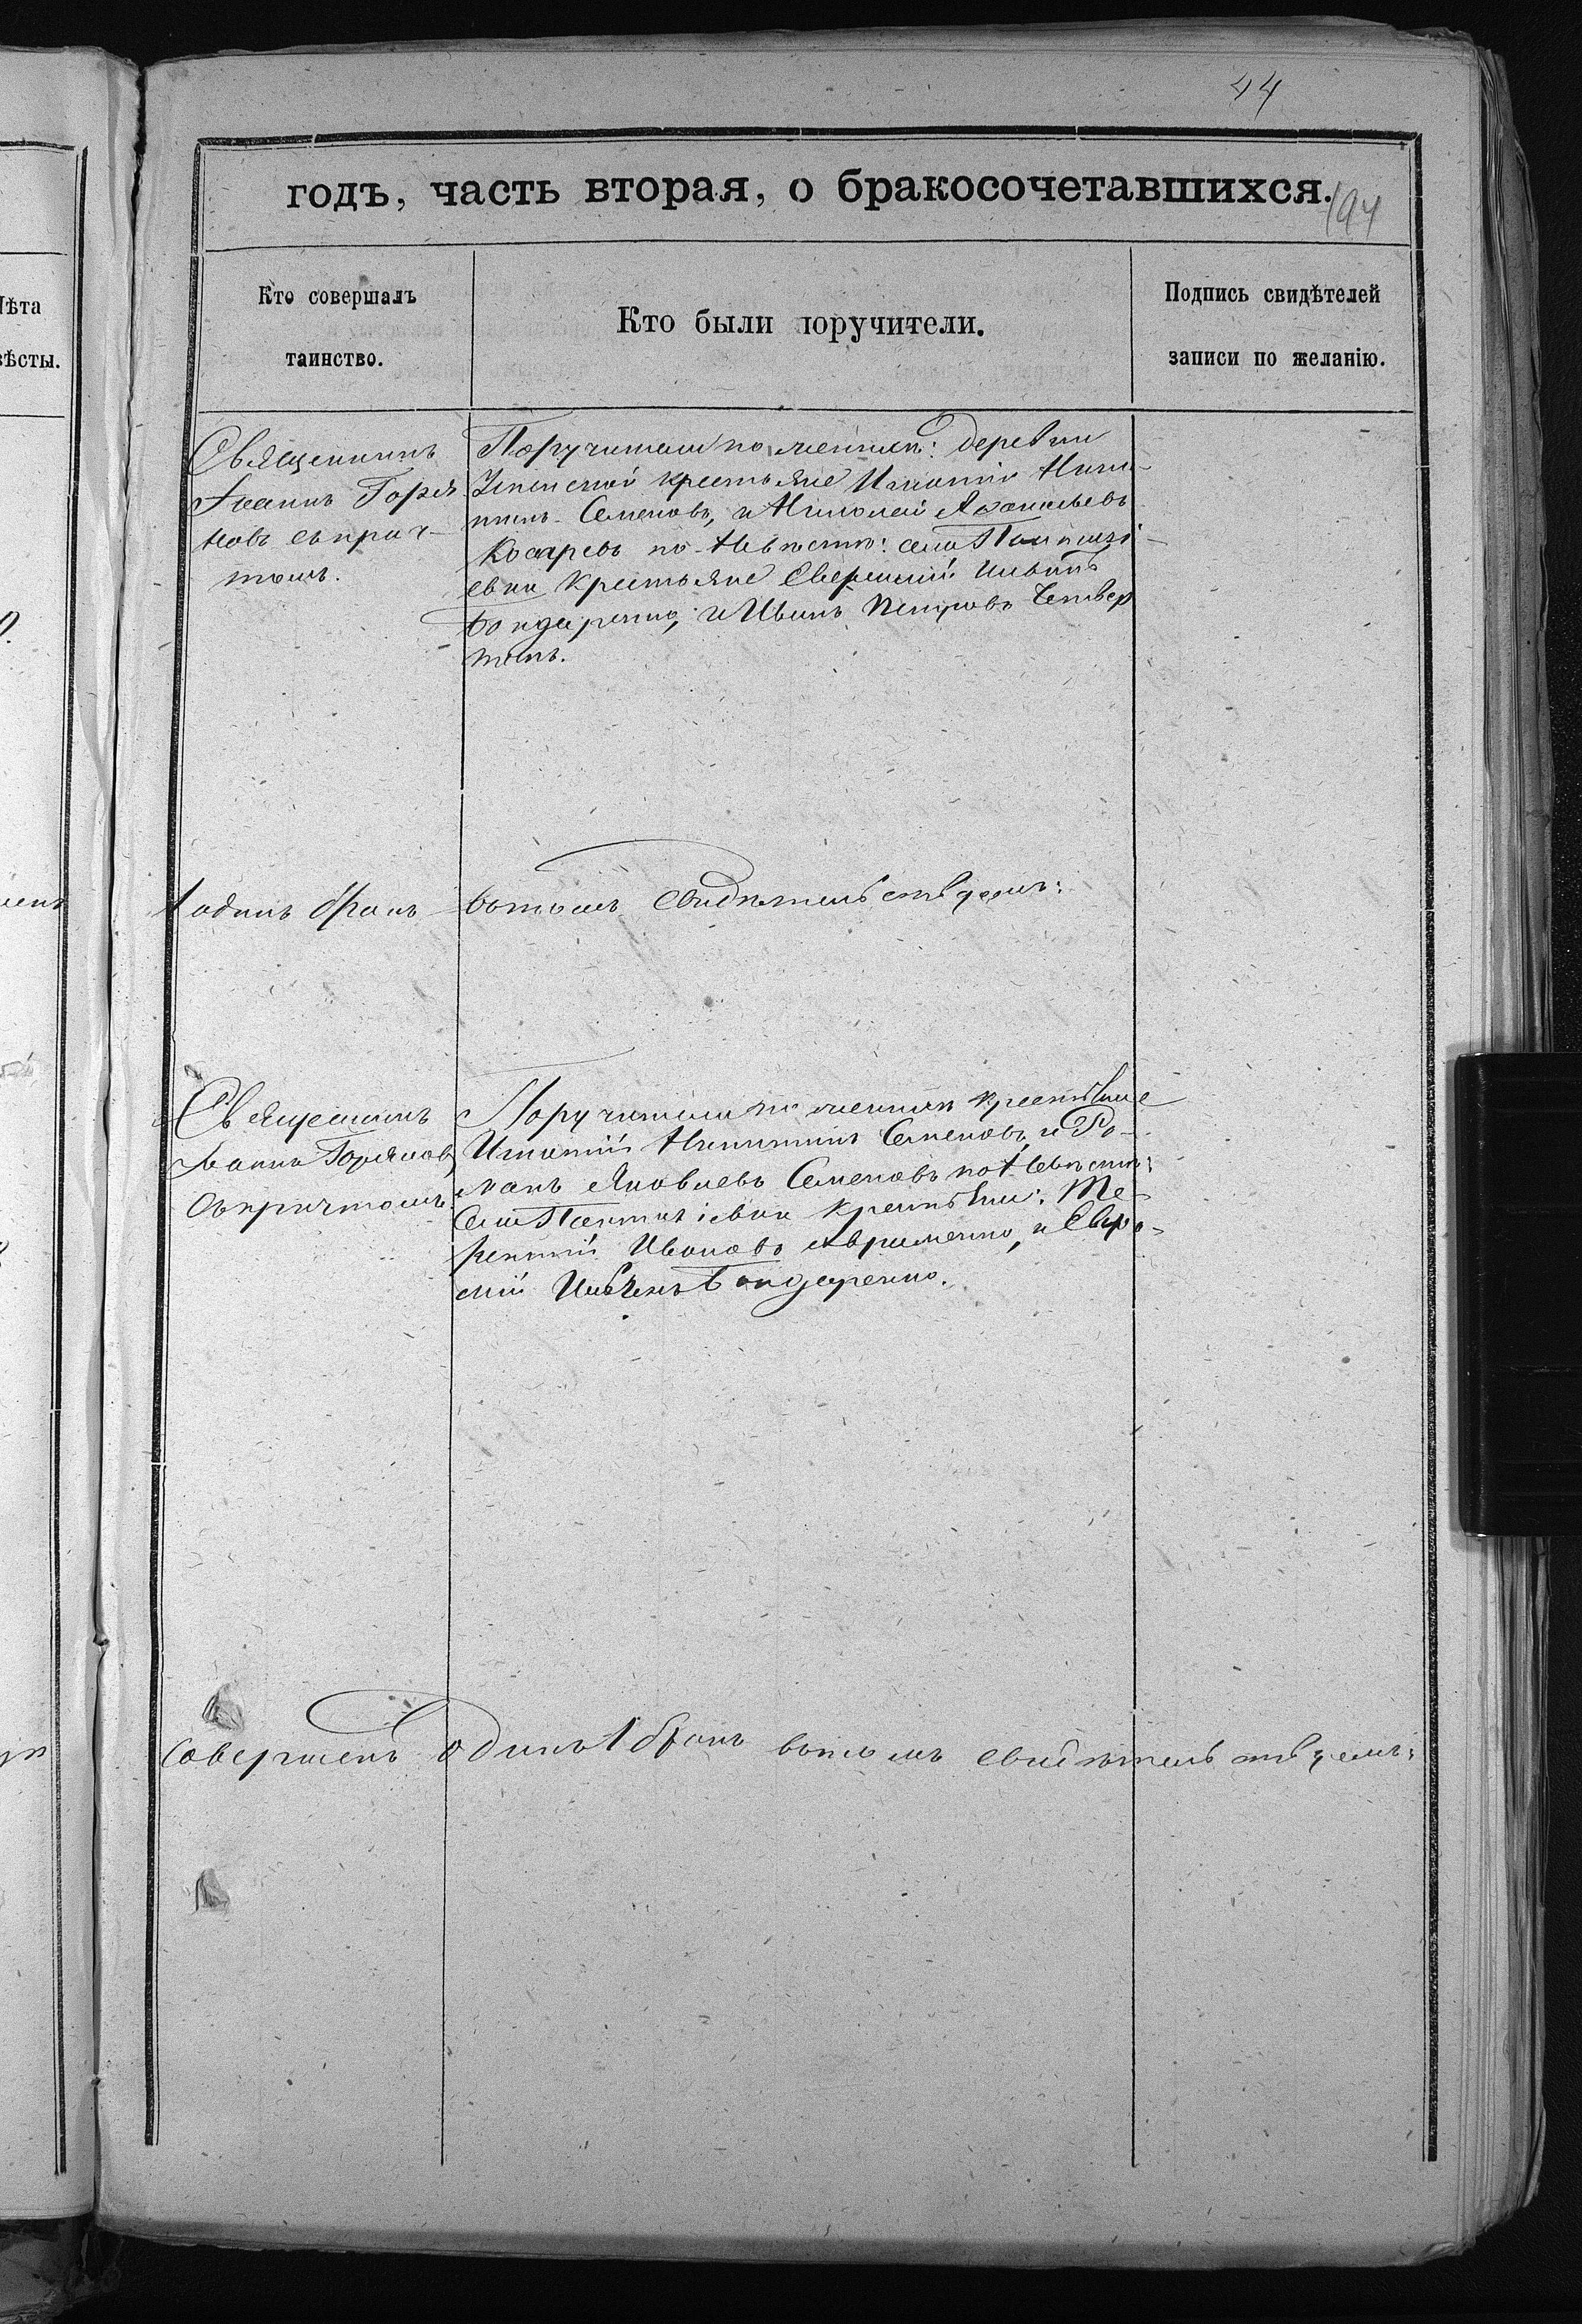 44
годъ, часть вторая, о бракосочетавшихся.
194
Кто совершалъ
таинство.
Кто были поручители.
Подпись свидѣтелей
записи по желанію.
лѣта
вѣсты.
Священникъ
Іоаннъ Горя
новъ съ прич-
томъ.
Поручители по женихѣ: деревни
крестьяне Игнатій Ники-
тинъ Семеновъ, и Николай
Косаревъ по невѣстѣ: села Пантелі-
евки крестьяне Иванъ
Бондаренко, и Иванъ Петровъ Четвер
такъ.
1 одинъ бракъ вотомъ свидѣтельствуемъ:
Священникъ
Іоаннъ Горяновъ
съ причтомъ.
Поручители по женихѣ крестьяне
Игнатій Никитинъ Семеновъ, и Ро-
манъ Яковлевъ Семеновъ по невѣстѣ:
села крестьяне: Те-
рентій Ивановъ Авраменко, и
Бондаренко.
Совершенъ одинъ 1 бракъ вотомъ свидѣтельствуемъ: